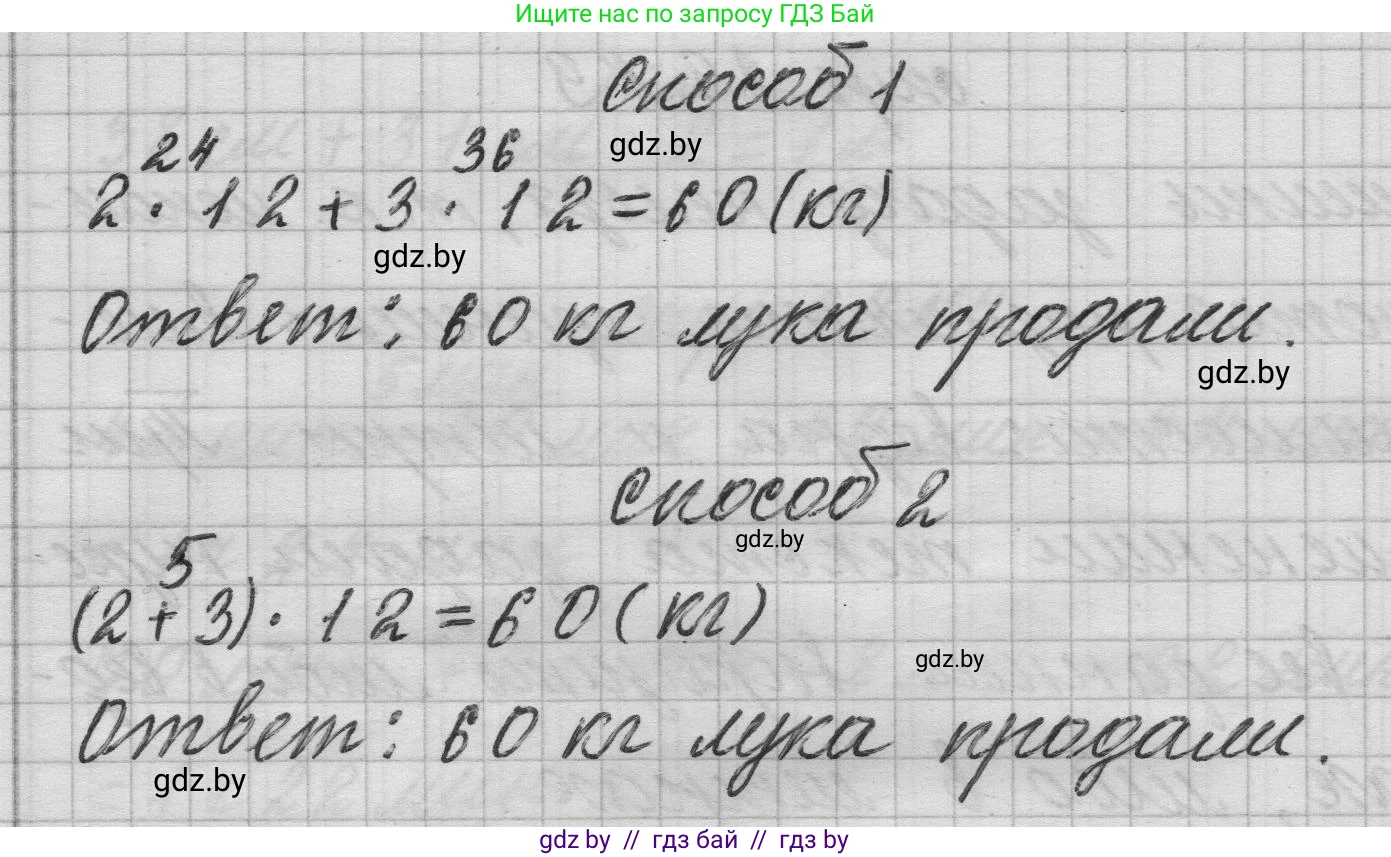 Ищите нас по запросу ГДЗ Бай
Способ 1
gdz.by
24 36
2 · 12 + 3 · 12 = 60 (кг)
gdz.by
Ответ: 60 кг лука продали.
gdz.by
Способ 2
gdz.by
5
(2 + 3) · 12 = 60 (кг)
gdz.by
Ответ: 60 кг лука продали.
gdz.by
gdz by // гдз бай // гдз by